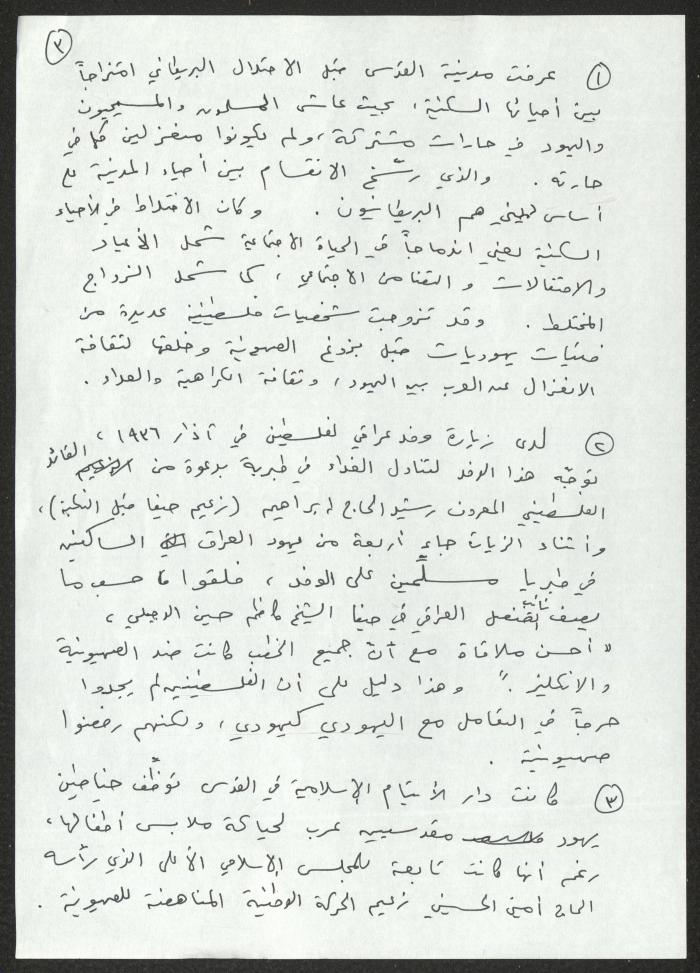 ٣
١ عرفت مدينة القدس قبل الاحتلال البريطاني امتزاجاً
بين أحيائها السكنية، بحيث عاش المسلمون والمسيحيون
واليهود في حارات مشتركة، ولم يكونوا منعزلين كلٌ في
حارته. والذي رسّخ الانقسام بين أحياء المدينة على
أساس ديني هم البريطانيون. وكان الاختلاط في الأحياء
السكنية يعني اندماجاً في الحياة الاجتماعية شمل الأعياد
والاحتفالات والتضامن الاجتماعي، كما شمل الزواج
المختلط. وقد تزوجت شخصيات فلسطينية عديدة من
فتيات يهوديات قبل بزوغ الصهيونية وخلقها لثقافة
الانعزال عند العرب بين اليهود، وثقافة الكراهية والعداء.
٢ لدى زيارة وفد عراقي لفلسطين في آذار ١٩٣٦،
توجّه هذا الوفد لتناول الغداء في طبرية بدعوة من الزعيم القائد
الفلسطيني المعروف رشيد الحاج إبراهيم (زعيم حيفا قبل النكبة)،
وأثناء الزيارة جاء أربعة من يهود العراق الساكنين
في طبريا مسلّمين على الوفد، فلقوا حسب ما
يصف نائب القنصل العراقي في حيفا الشيخ كاظم حسين الدجيلي،
"أحسن ملاقاة مع أنّ جميع الخطب كانت ضد الصهيونية
والانكليز." وهذا دليل على أن الفلسطينيين لم يجدوا
حرجاً في التعامل مع اليهودي كيهودي، ولكنهم رفضوا
صهيونيته.
٣ كانت دار الأيتام الإسلامية في القدس توظّف خياطين
يهود مقدسيين عرب لحياكة ملابس أطفالها،
رغم أنها كانت تابعة للمجلس الإسلامي الأعلى الذي رأسه
الحاج أمين الحسيني زعيم الحركة الوطنية المناهضة للصهيونية.